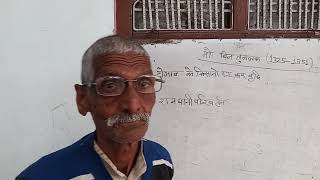 मो बिन तुगलक (1325-1351)
दोआब के किसानों पर कर वृद्धि
राजधानी परिवर्तन